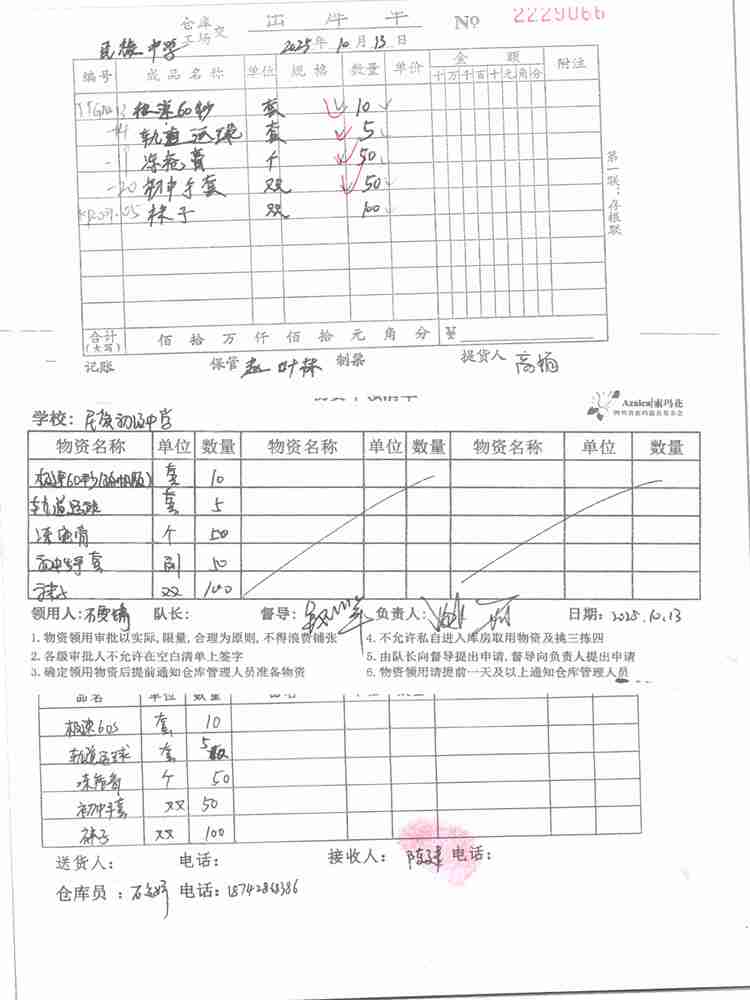 仓库
工场交
出库单
№ 2229066
民族中学
2025年10月13日
编号 成品名称 单位 规格 数量 单价 金额 附注
十万千百十元角分
极速60秒 套 10
轨道运球 套 5
个 50
-20 初中手套 双 50
袜子 双 100
第一联：存根联
合计(大写) 佰拾万仟佰拾元角分 ¥
记账 保管 制票 提货人
Azalea|索玛花
学校：民族初级中学
物资名称 单位 数量 物资名称 单位 数量 物资名称 单位 数量
极速60秒 套 10
轨道运球 套 5
个 50
初中手套 副 50
袜子 双 100
领用人: 队长: 督导: 负责人: 日期: 2025.10.13
1. 物资领用审批以实际, 限量, 合理为原则, 不得浪费铺张 4. 不允许私自进入库房取用物资及挑三拣四
2. 各级审批人不允许在空白清单上签字 5. 由队长向督导提出申请, 督导向负责人提出申请
3. 确定领用物资后提前通知仓库管理人员准备物资 6. 物资领用请提前一天及以上通知仓库管理人员
品名 单位 数量
极速60s 套 10
轨道运球 套 5
个 50
初中手套 双 50
袜子 双 100
送货人: 电话: 接收人: 电话:
仓库员: 电话: 18742868386